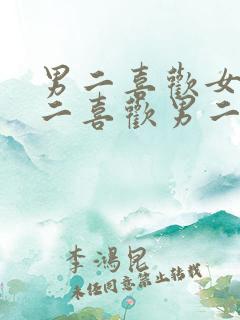 男二喜歡女
二喜歡男二
李鴻昆
未经同意禁止转载